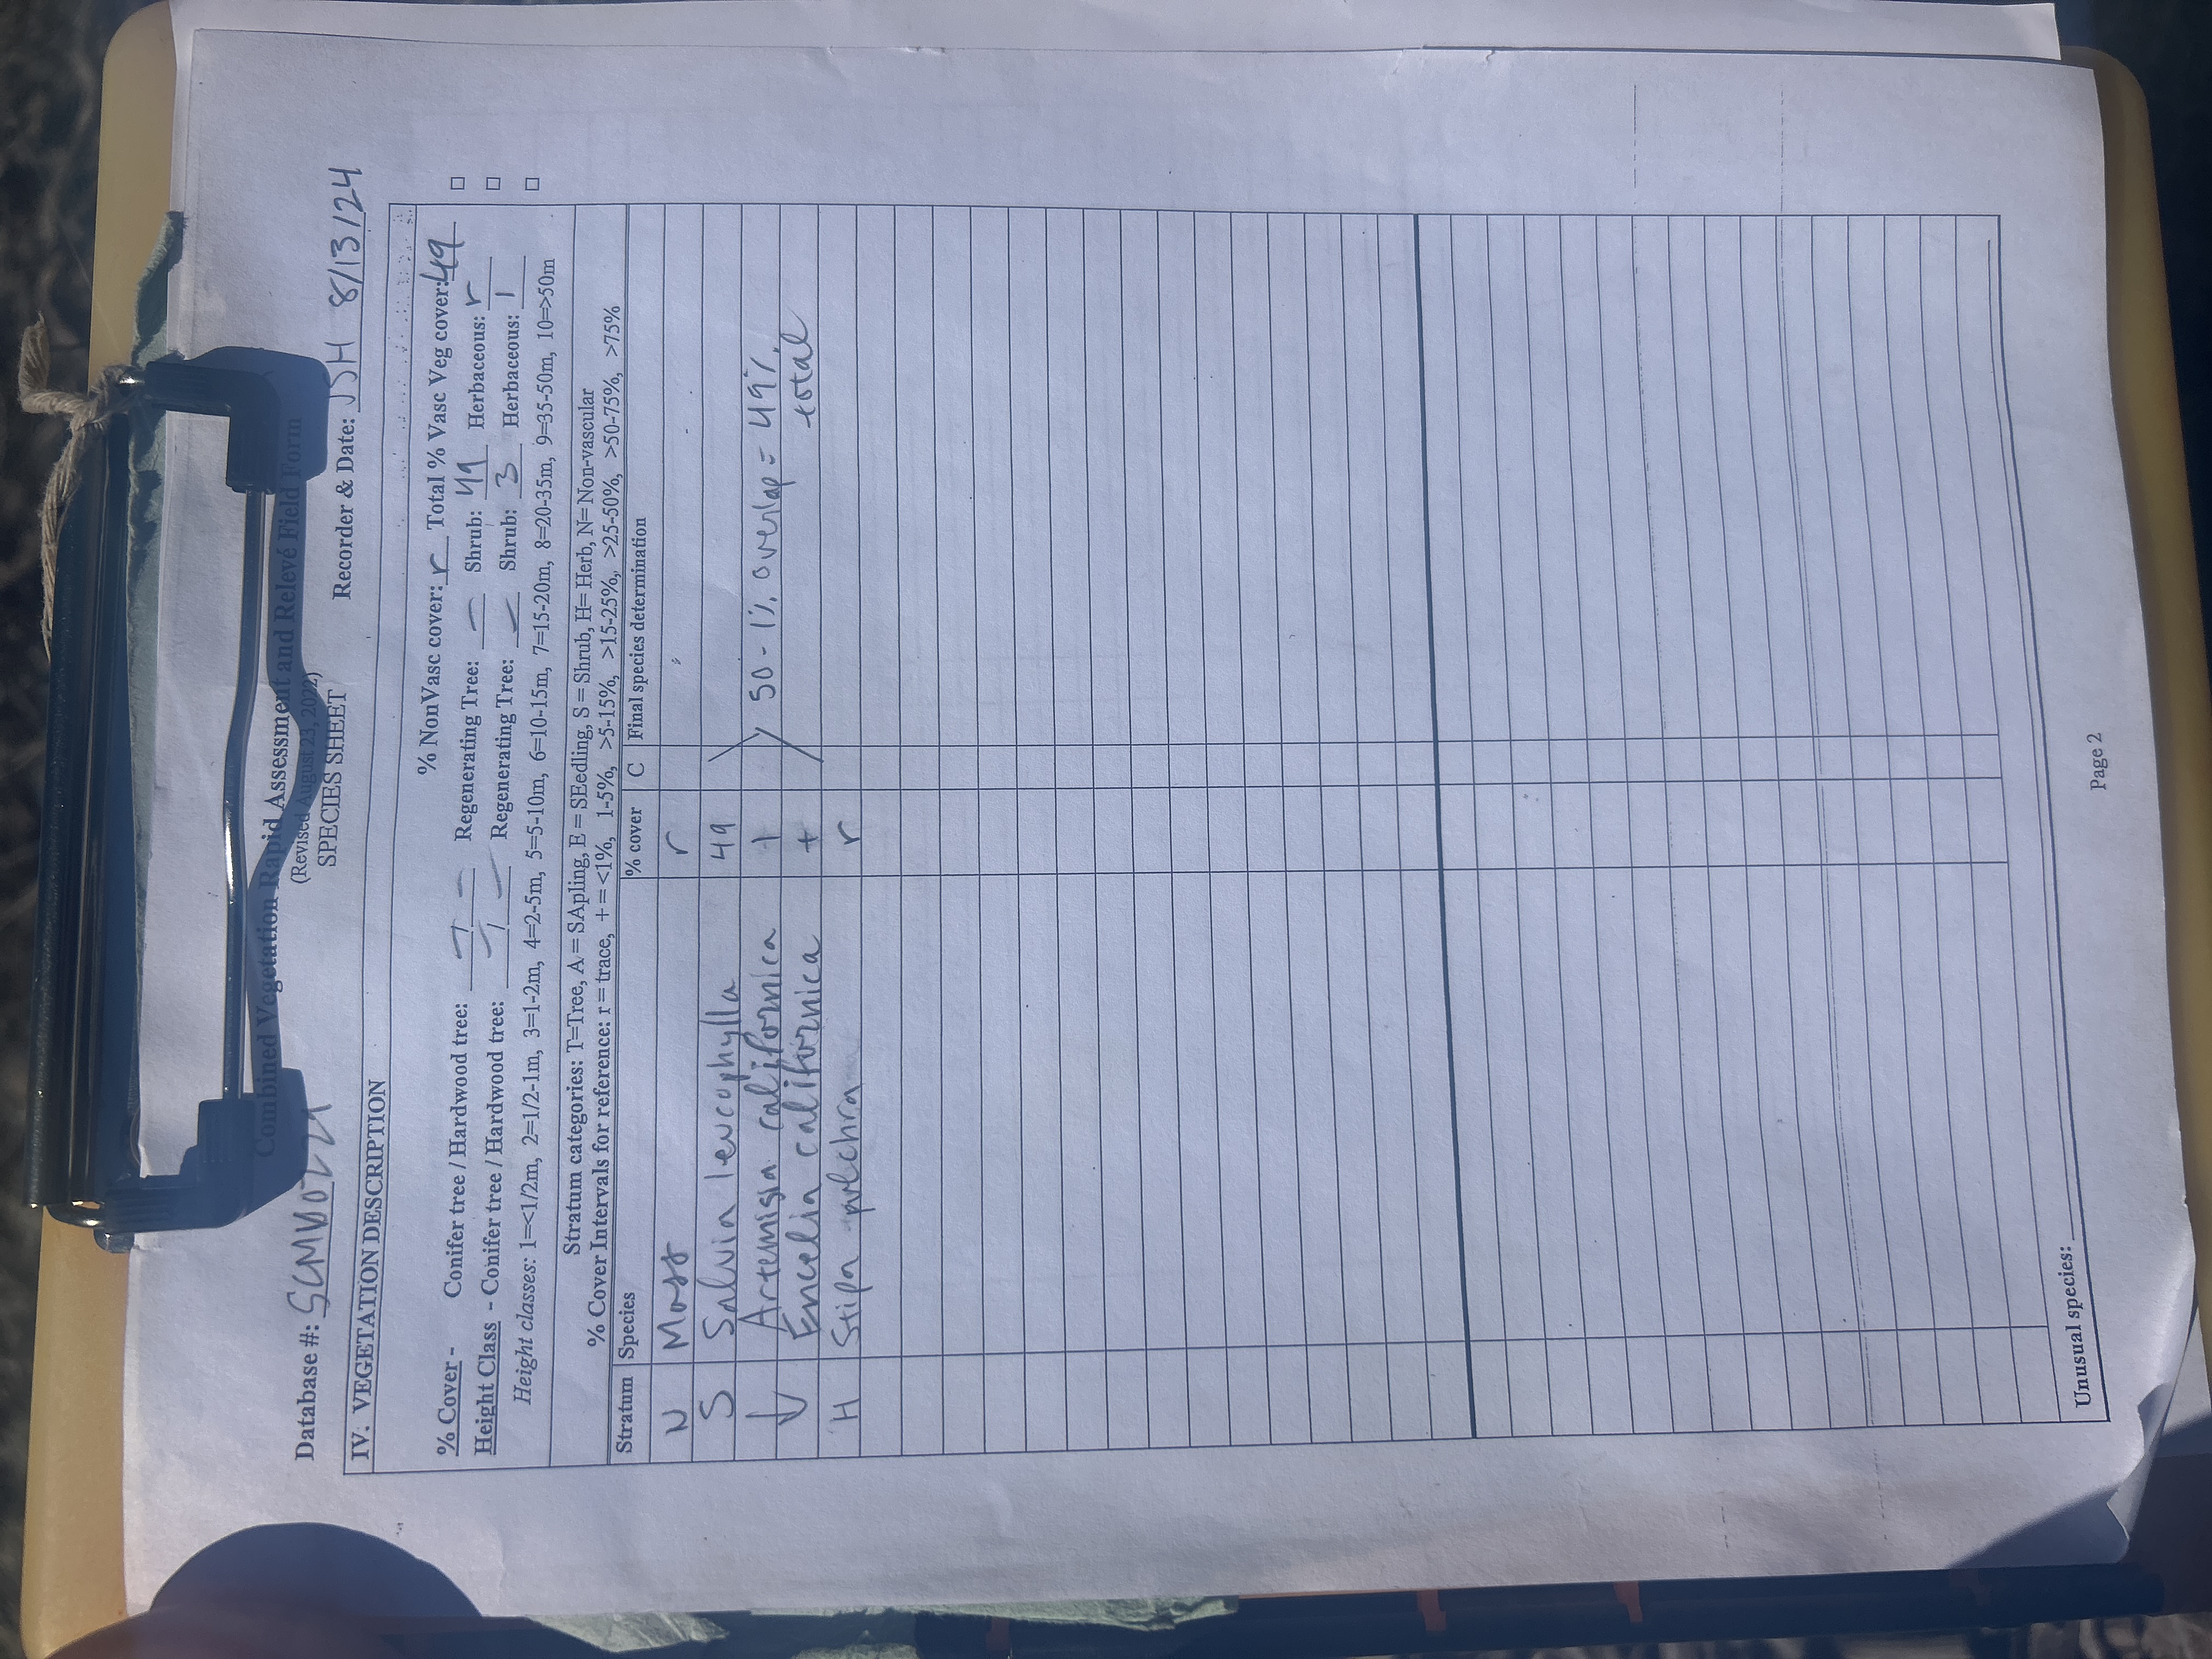 Combined Vegetation Rapid Assessment and Relevé Field Form
(Revised August 23, 2022)
SPECIES SHEET
Database #: Recorder & Date: JSH 8/13/24
IV. VEGETATION DESCRIPTION
% NonVasc cover: r Total % Vasc Veg cover: 49 □
% Cover - Conifer tree / Hardwood tree: - / - Regenerating Tree: - Shrub: 49 Herbaceous: r □
Height Class - Conifer tree / Hardwood tree: - / - Regenerating Tree: - Shrub: 3 Herbaceous: 1 □
Height classes: 1=<1/2m, 2=1/2-1m, 3=1-2m, 4=2-5m, 5=5-10m, 6=10-15m, 7=15-20m, 8=20-35m, 9=35-50m, 10=>50m
Stratum categories: T=Tree, A = SApling, E = SEedling, S = Shrub, H= Herb, N= Non-vascular
% Cover Intervals for reference: r = trace, + = <1%, 1-5%, >5-15%, >15-25%, >25-50%, >50-75%, >75%
Stratum Species % cover C Final species determination
N Moss r
S Salvia leucophylla 49
↓ Artemisia californica + 50 - 1% overlap = 49%
Encelia californica + total
H Stipa pulchra r
Unusual species:
Page 2